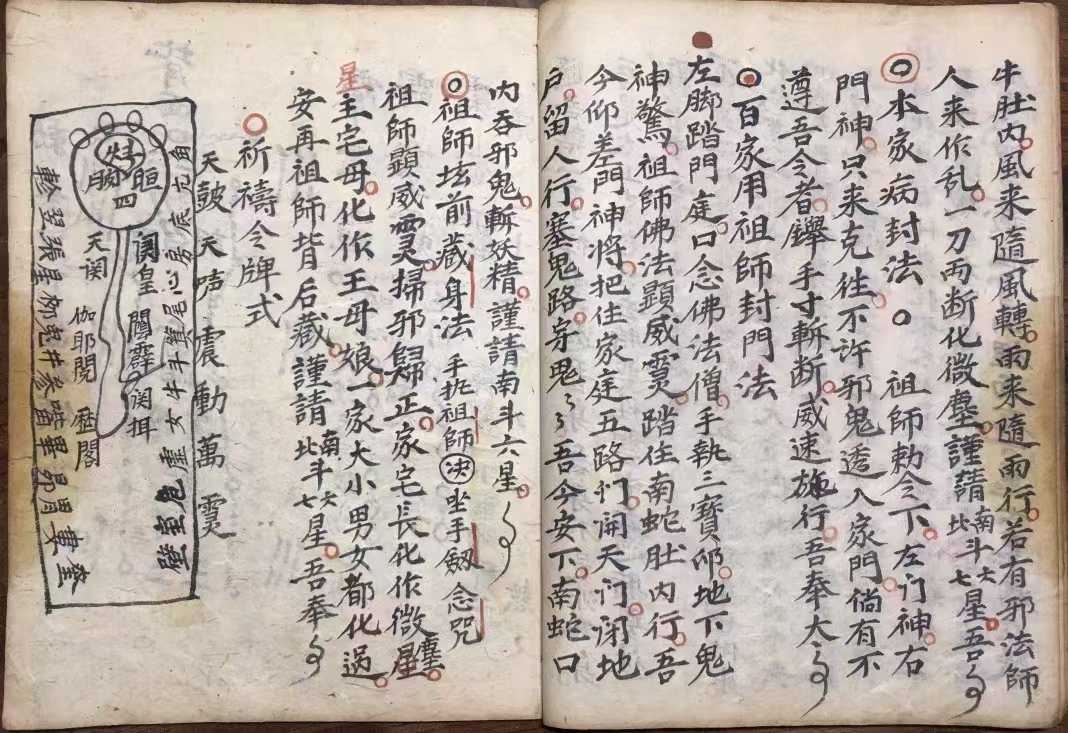 牛肚内风来隨风轉雨来隨雨行若有邪法師
人来作乱一刀两断化微塵謹請南斗六北斗七星吾
本家病封法 祖師勅令下左门神右
門神只来克往不許邪鬼透入家門倘有不
遵吾令者鑻手寸斬断威速施行吾奉大
百家用祖師封門法
左脚踏門庭口念佛法僧手執三寳邜地下鬼
神驚祖師佛法顕威灵踏住南蛇肚内行吾
今仰差門神将把住家庭五路门闹天门闭地
户留人行塞鬼路吾今安下南蛇口
内吞邪鬼斬妖精謹請南斗六星
祖師垓前藏身法 手扥祖師决坐手劔念咒
祖師顕威灵掃邪歸正家宅長化作微塵星
星主宅母化作王母娘一家大小男女都化過
安再祖師背后藏謹請南斗六北斗七星吾奉
祈禱令牌式
天皷 天哼 震動萬灵
角亢房底心尾箕斗牛女虚危室壁
奎婁胃昴畢觜參井鬼柳星張翌軫
四
天関